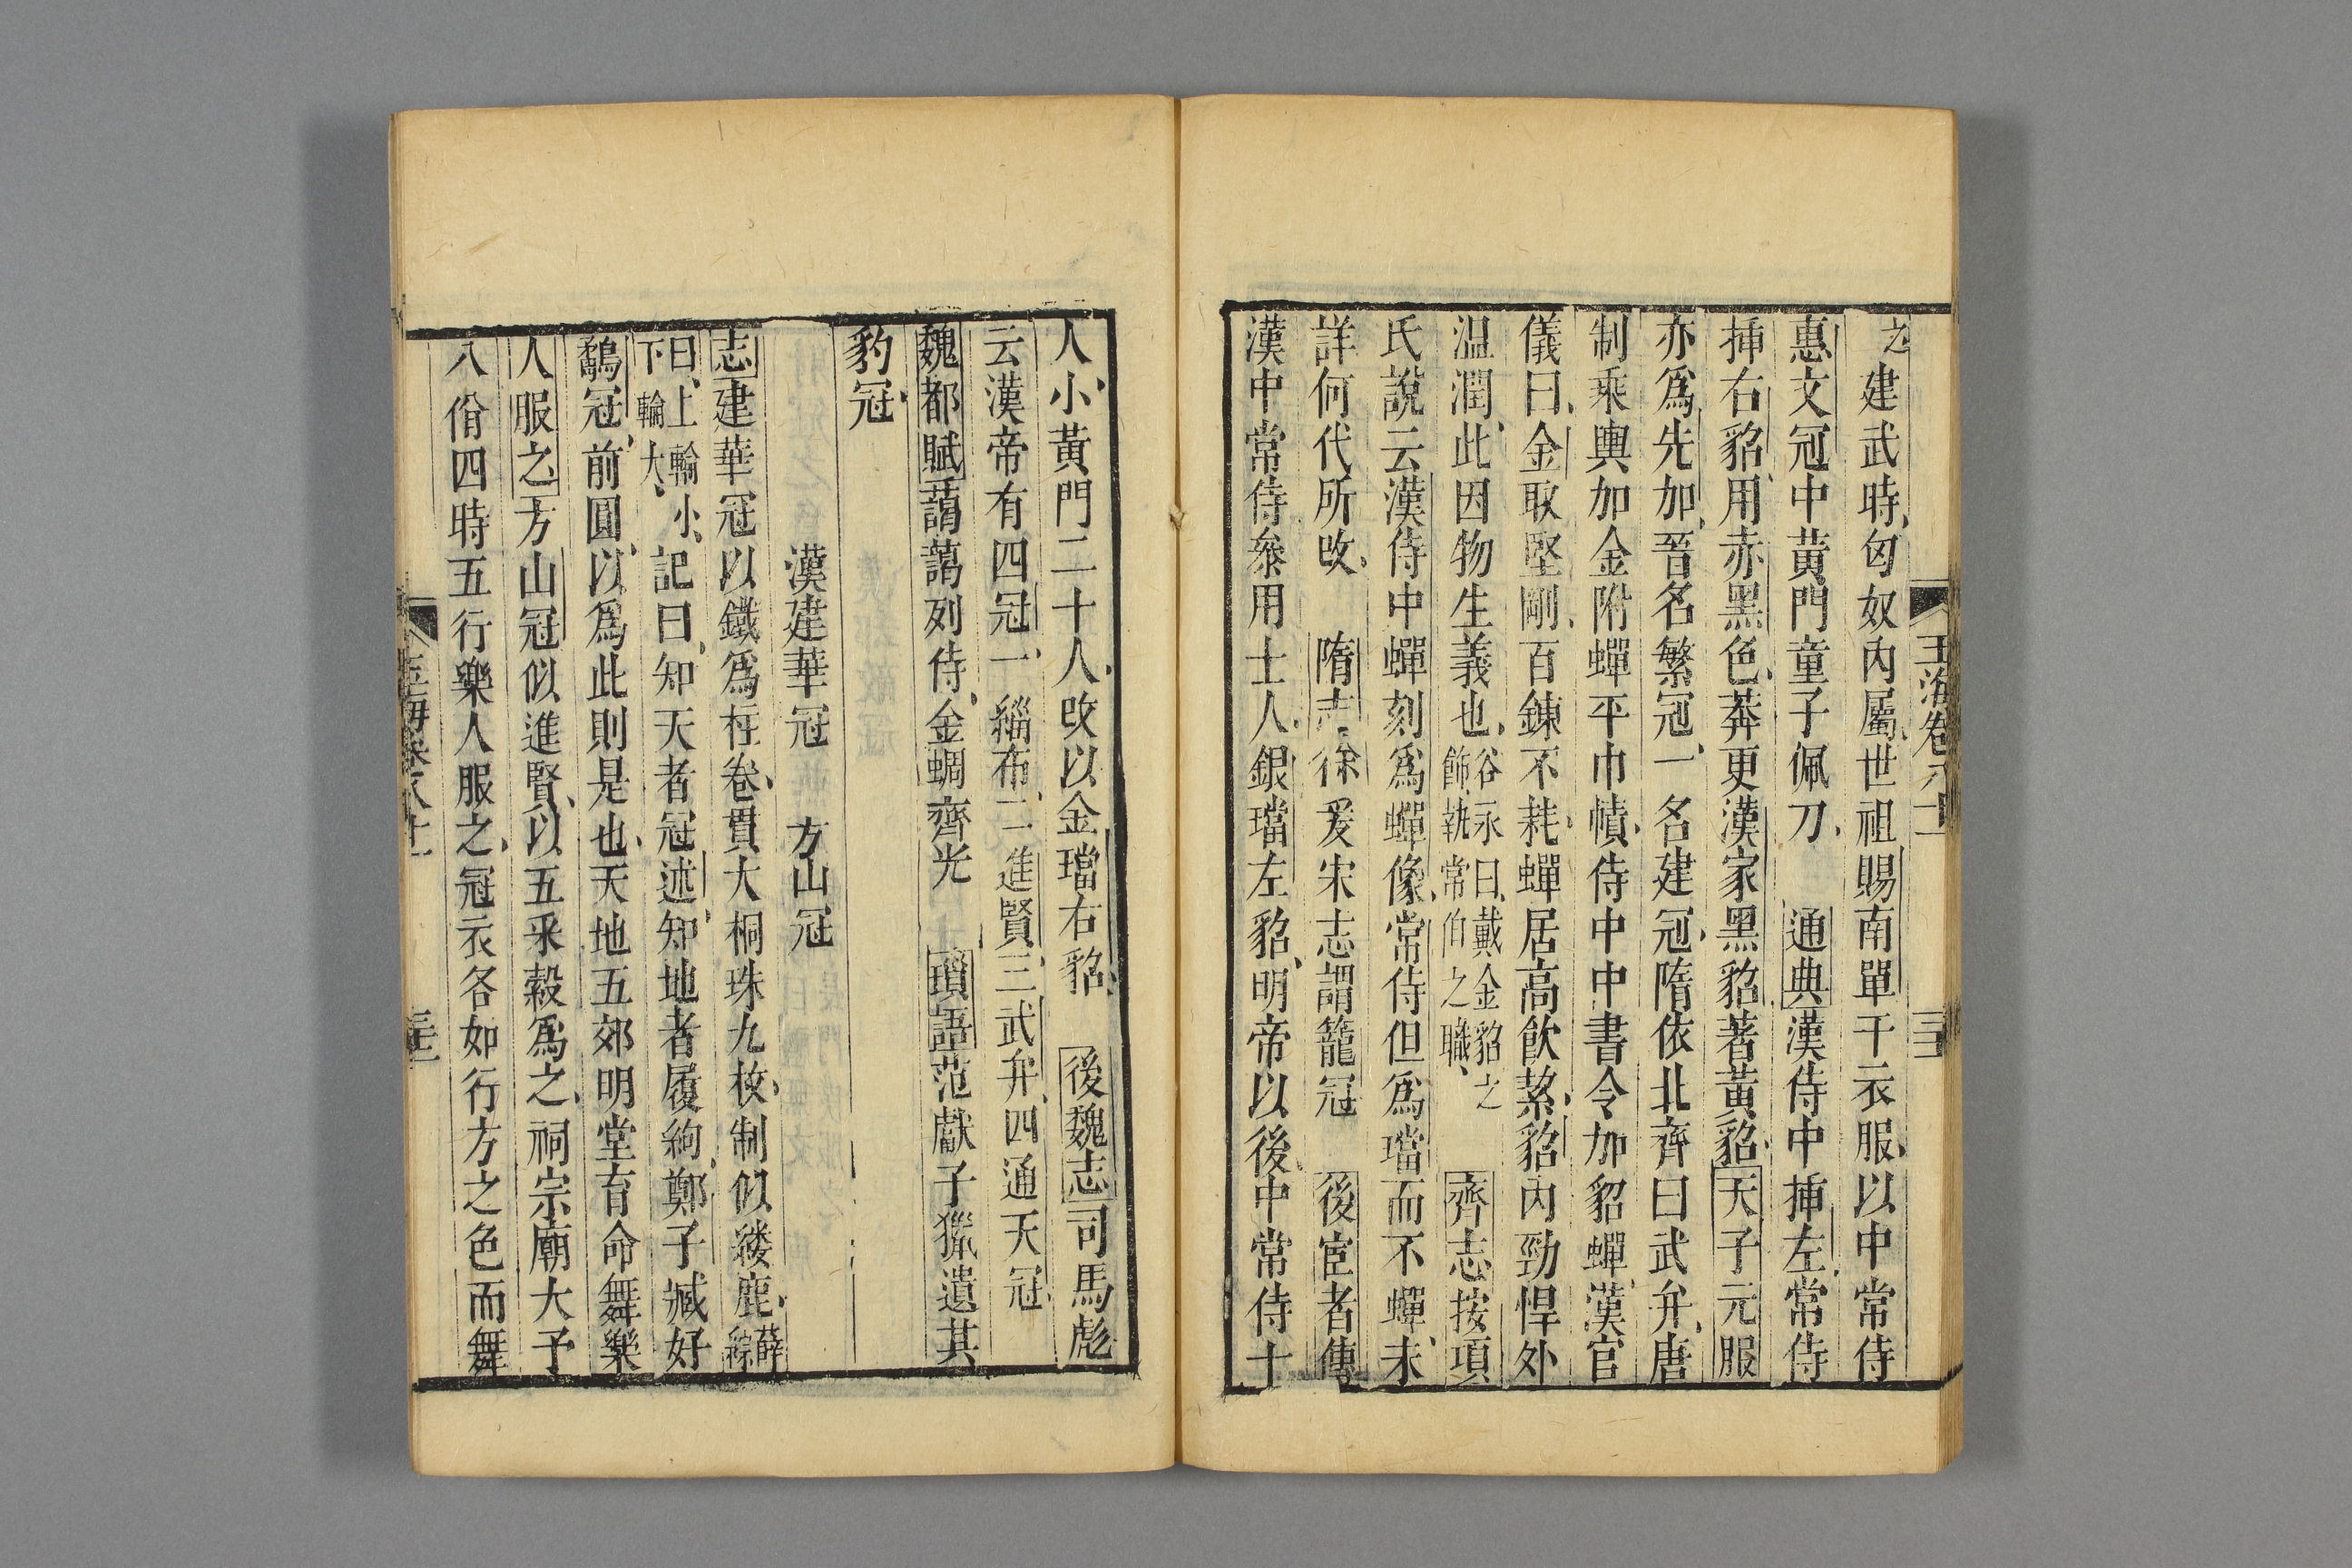 玉海卷八十二
三十二
之建武時匈奴內屬世祖賜南單于衣服以中常侍
惠文冠中黃門童子佩刀 通典漢侍中揷左常侍
揷右貂用赤黑色莽更漢家黑貂著黃貂天子元服
亦爲先加晉名繁冠一名建冠隋依北齊曰武弁唐
制乘輿加金附蟬平巾幘侍中中書令加貂蟬漢官
儀曰金取堅剛百鍊不耗蟬居高飮絜貂內勁悍外
温潤此因物生義也谷永曰戴金貂之飾執常伯之職 齊志按項
氏說云漢侍中蟬刻爲蟬像常侍但爲璫而不蟬未
詳何代所改 隋志徐爰宋志謂籠冠 後宦者傳
漢中常侍參用士人銀璫左貂明帝以後中常侍十
人小黃門二十人改以金璫右貂 後魏志司馬彪
云漢帝有四冠一緇布二進賢三武弁四通天冠
魏都賦藹藹列侍金蜩齊光 瑣語范獻子獵遺其
豹冠
漢建華冠 方山冠
志建華冠以鐵爲柱卷貫大桐珠九枚制似縷鹿薛綜
曰上輪小下輪大記曰知天者冠述知地者履絇鄭子臧好
鷸冠前圓以爲此則是也天地五郊明堂育命舞樂
人服之方山冠似進賢以五采縠爲之祠宗廟大予
八佾四時五行樂人服之冠衣各如行方之色而舞